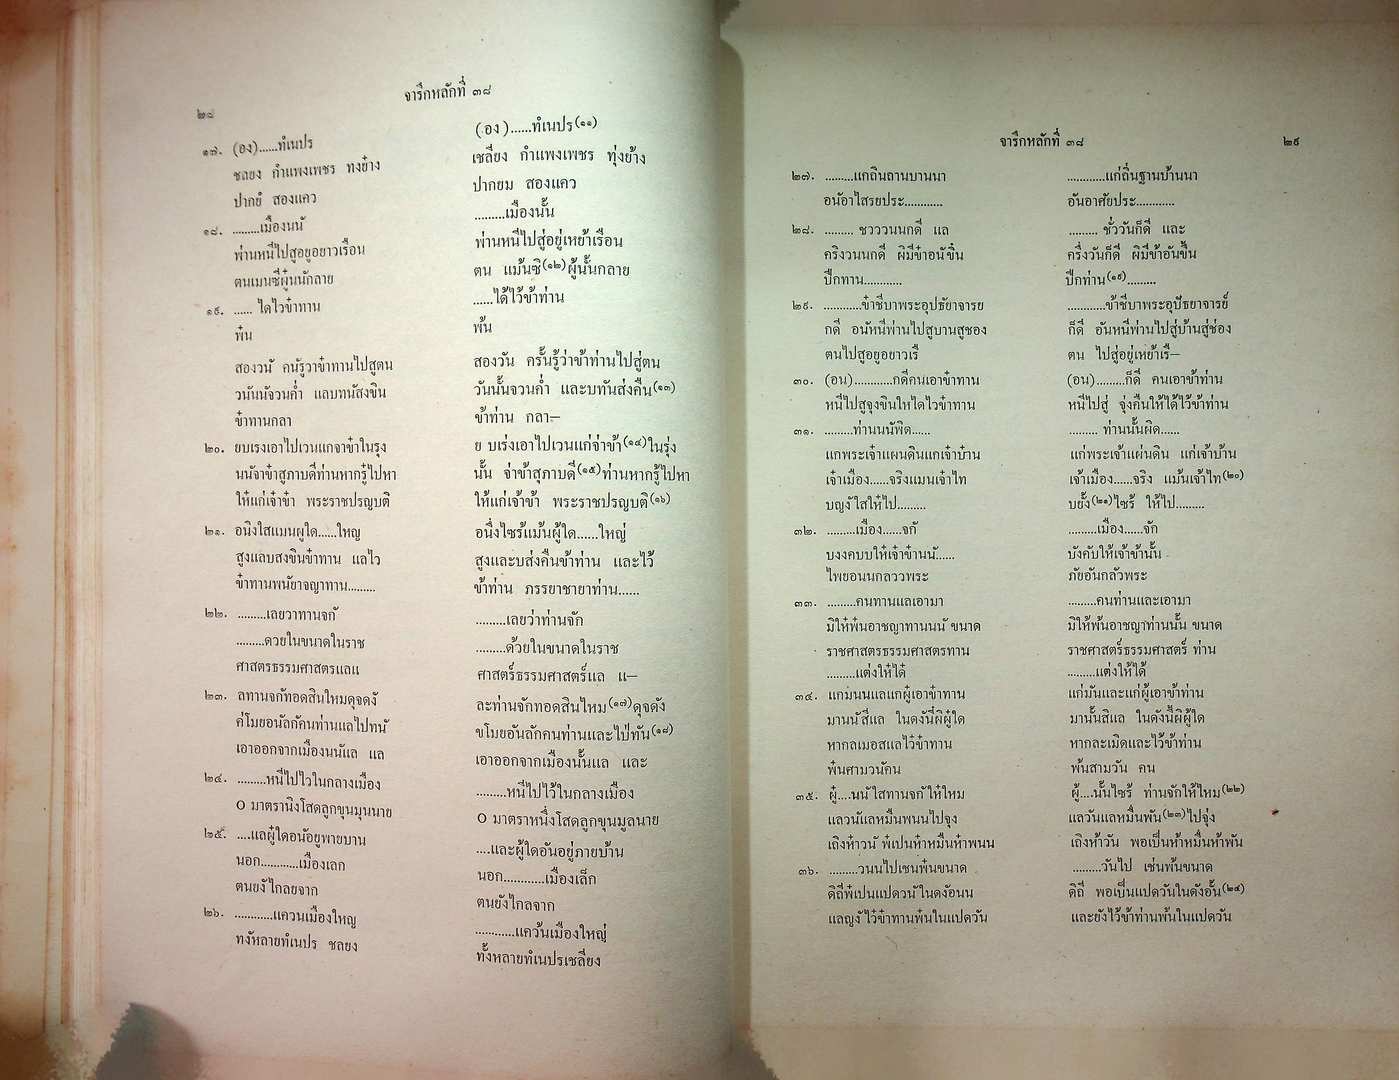 ๒๘
จารึกหลักที่ ๓๘
๑๗. (อง)......ทํเนปร
ชลยง กำแพงเพชร ทงย๋าง
ปากยํ สองแคว
๑๘. .........เมืองนนั
พ่านหนีไปสู่อยูอยาวเรือน
ตนเมนซีผู๋นนักลาย
๑๙. ...... ไดไวข๋าทาน
พ๋น
สองวนั คนัรู้วาข๋าทานไปสูตน
วนันนัจวนค่ำ แลบทนัสงขิน
ข๋าทานกลา
๒๐. ยบเรงเอาไปเวนแกจาข๋าในรุง
นนัจาข๋าสูภาบดีท่านหากรู๋ไปหา
ให๋แก่เจ๋าข๋า พระราชปรญบติ
๒๑. อนิงใสแมนผูใด......ใหญ
สูงแลบสงขินข๋าทาน แลไว
ข๋าทานพนัยาจญาทาน.........
๒๒. .........เลยวาทานจกั
.........ดวยในขนาดในราช
ศาสตรธรรมศาสตรแลแ
๒๓. ลทานจกัทอดสินใหมดุจดงั
ค่โมยอนัลักัคนท่านแลไปทนั
เอาออกจากเมืองนนัแล แล
๒๔. .........หนีไปไวในกลางเมือง
๐ มาตรานิงโสดลูกขุนมุนนาย
๒๕. ....แลผู๋ใดอนัอยูพายบาน
นอก............เมืองเลก
ตนยงัไกลยจาก
๒๖. ............แควนเมืองใหญ
ทงัหลายทํเนปร ชลยง
(อง)......ทํเนปร(๑๑)
เชลียง กำแพงเพชร ทุ่งย้าง
ปากยม สองแคว
.........เมืองนั้น
พ่านหนีไปสู่อยู่เหย้าเรือน
ตน แม้นซิ(๑๒)ผู้นั้นกลาย
......ได้ไว้ข้าท่าน
พ้น
สองวัน ครั้นรู้ว่าข้าท่านไปสู่ตน
วันนั้นจวนค่ำ และบทันส่งคืน(๑๓)
ข้าท่าน กลา—
ย บเร่งเอาไปเวนแก่จ่าข้า(๑๔)ในรุ่ง
นั้น จ่าข้าสุภาบดี(๑๕)ท่านหากรู้ไปหา
ให้แก่เจ้าข้า พระราชปรญบติ(๑๖)
อนึ่งไซร้แม้นผู้ใด......ใหญ่
สูงและบส่งคืนข้าท่าน และไว้
ข้าท่าน ภรรยาชายาท่าน......
.........เลยว่าท่านจัก
.........ด้วยในขนาดในราช
ศาสตร์ธรรมศาสตร์แล แ—
ละท่านจักทอดสินไหม(๑๗)ดุจดัง
ขโมยอันลักคนท่านและไปทัน(๑๘)
เอาออกจากเมืองนั้นแล และ
.........หนีไปไว้ในกลางเมือง
๐ มาตราหนึ่งโสดลูกขุนมูลนาย
....และผู้ใดอันอยู่ภายบ้าน
นอก............เมืองเล็ก
ตนยังไกลจาก
............แคว้นเมืองใหญ่
ทั้งหลายทํเนปรเชลียง
จารึกหลักที่ ๓๘
๒๙
๒๗. .........แกถินถานบานนา
อนัอาไสรยประ............
๒๘. ......... ชวววนนกดี แล
ครึงวนนกดี ผิมีข๋าอนัขิน
ปืกทาน............
๒๙. ............ข๋าชีบาพระอุปธัยาจารย
กดี อนัหนีพ่านไปสูบานสูชอง
ตนไปสูอยูอยาวเรื
๓๐. (อน)............กดีคนเอาข๋าทาน
หนีไปสูจุงขินใหไดไวข๋าทาน
๓๑. .........ท่านนนัพิด......
แกพระเจ๋าแผนดินแกเจ๋าบ๋าน
เจ๋าเมือง......จริงแมนเจ๋าไท
บญงัใสให๋ไป.........
๓๒. .........เมือง......จกั
บงงคบบให๋เจ๋าข๋านนั......
ไพยอนนกลววพระ
๓๓. .........คนทานแลเอามา
มิให๋พ๋นอาชญาทานนนั ขนาด
ราชศาสตรธรรมศาสตรทาน
.........แต่งให๋ได๋
๓๔. แกมนนแลแกผู๋เอาข๋าทาน
มานนัสี่แล ในดงันี๋ผิผู๋ใด
หากลเมอสแลไว๋ข๋าทาน
พ๋นศามวนัคน
๓๕. ผู๋....นนัใสทานจกัให๋ใหม
แลวนัแลหมืนพนนไปจุง
เถิงห๋าวนั พ๋เปนห๋าหมืนห๋าพนน
๓๖. .........วนนไปเชนพ๋นขนาด
ดิถีพ๋เปนแปดวนัในดงัอนน
แลญงัไว๋ข๋าทานพ๋นในแปดวัน
............แก่ถิ่นฐานบ้านนา
อันอาศัยประ............
......... ชั่ววันก็ดี และ
ครึ่งวันก็ดี ผิมีข้าอันขึ้น
ปึกท่าน(๑๙).........
............ข้าชีบาพระอุปัธยาจารย์
ก็ดี อันหนีพ่านไปสู่บ้านสู่ช่อง
ตน ไปสู่อยู่เหย้าเรื—
(อน).........ก็ดี คนเอาข้าท่าน
หนีไปสู่ จุ่งคืนให้ได้ไว้ข้าท่าน
......... ท่านนั้นผิด......
แก่พระเจ้าแผ่นดิน แก่เจ้าบ้าน
เจ้าเมือง......จริง แม้นเจ้าไท(๒๐)
บยั้ง(๒๑)ไซร้ ให้ไป.........
.........เมือง......จัก
บังคับให้เจ้าข้านั้น
ภัยอันกลัวพระ
.........คนท่านและเอามา
มิให้พ้นอาชญาท่านนั้น ขนาด
ราชศาสตร์ธรรมศาสตร์ ท่าน
.........แต่งให้ได้
แก่มันและแก่ผู้เอาข้าท่าน
มานั้นสิแล ในดังนี้ผิผู้ใด
หากละเมิดและไว้ข้าท่าน
พ้นสามวัน คน
ผู้....นั้นไซร้ ท่านจักให้ไหม(๒๒)
แลวันแลหมื่นพัน(๒๓)ไปจุ่ง
เถิงห้าวัน พอเป็นห้าหมื่นห้าพัน
.........วันไป เช่นพ้นขนาด
ดิถี พอเป็นแปดวันในดังอั้น(๒๔)
และยังไว้ข้าท่านพ้นในแปดวัน